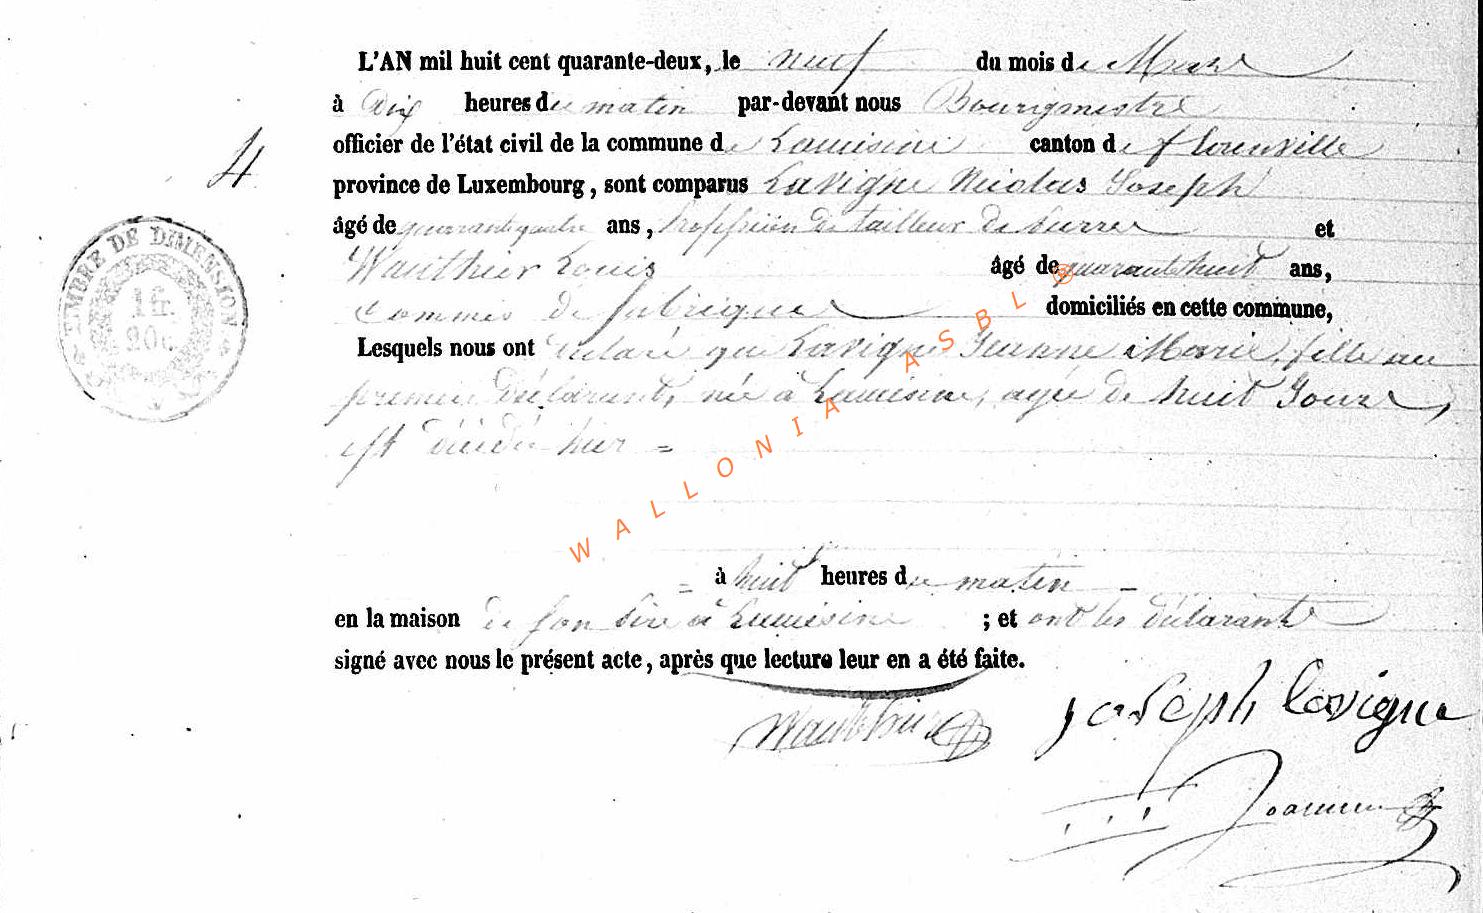 L'AN mil huit cent quarante-deux, le neuf du mois de Mars
à Dix heures du matin par-devant nous Bourgmestre
officier de l'état civil de la commune de Lacuisine canton de florenville
4
province de Luxembourg, sont comparus Lavigne Nicolas Joseph
âgé de quarante quatre ans, proffession de tailleur de pierre et
TIMBRE DE DIMENSION
1 fr.
20 c.
Wauthier Louis âgé de quarante huit ans,
commis de fabrique domiciliés en cette commune,
Lesquels nous ont déclaré que Lavigne Jeanne Marie, fille au
premier déclarant, née à Lacuisine, agée de huit Jours,
est décédée hier =
= à huit heures du matin =
en la maison de son père à Lacuisine ; et ont les déclarants
signé avec nous le présent acte, après que lecture leur en a été faite.
Wauthier
joseph lavigne
WALLONIA ASBL ®